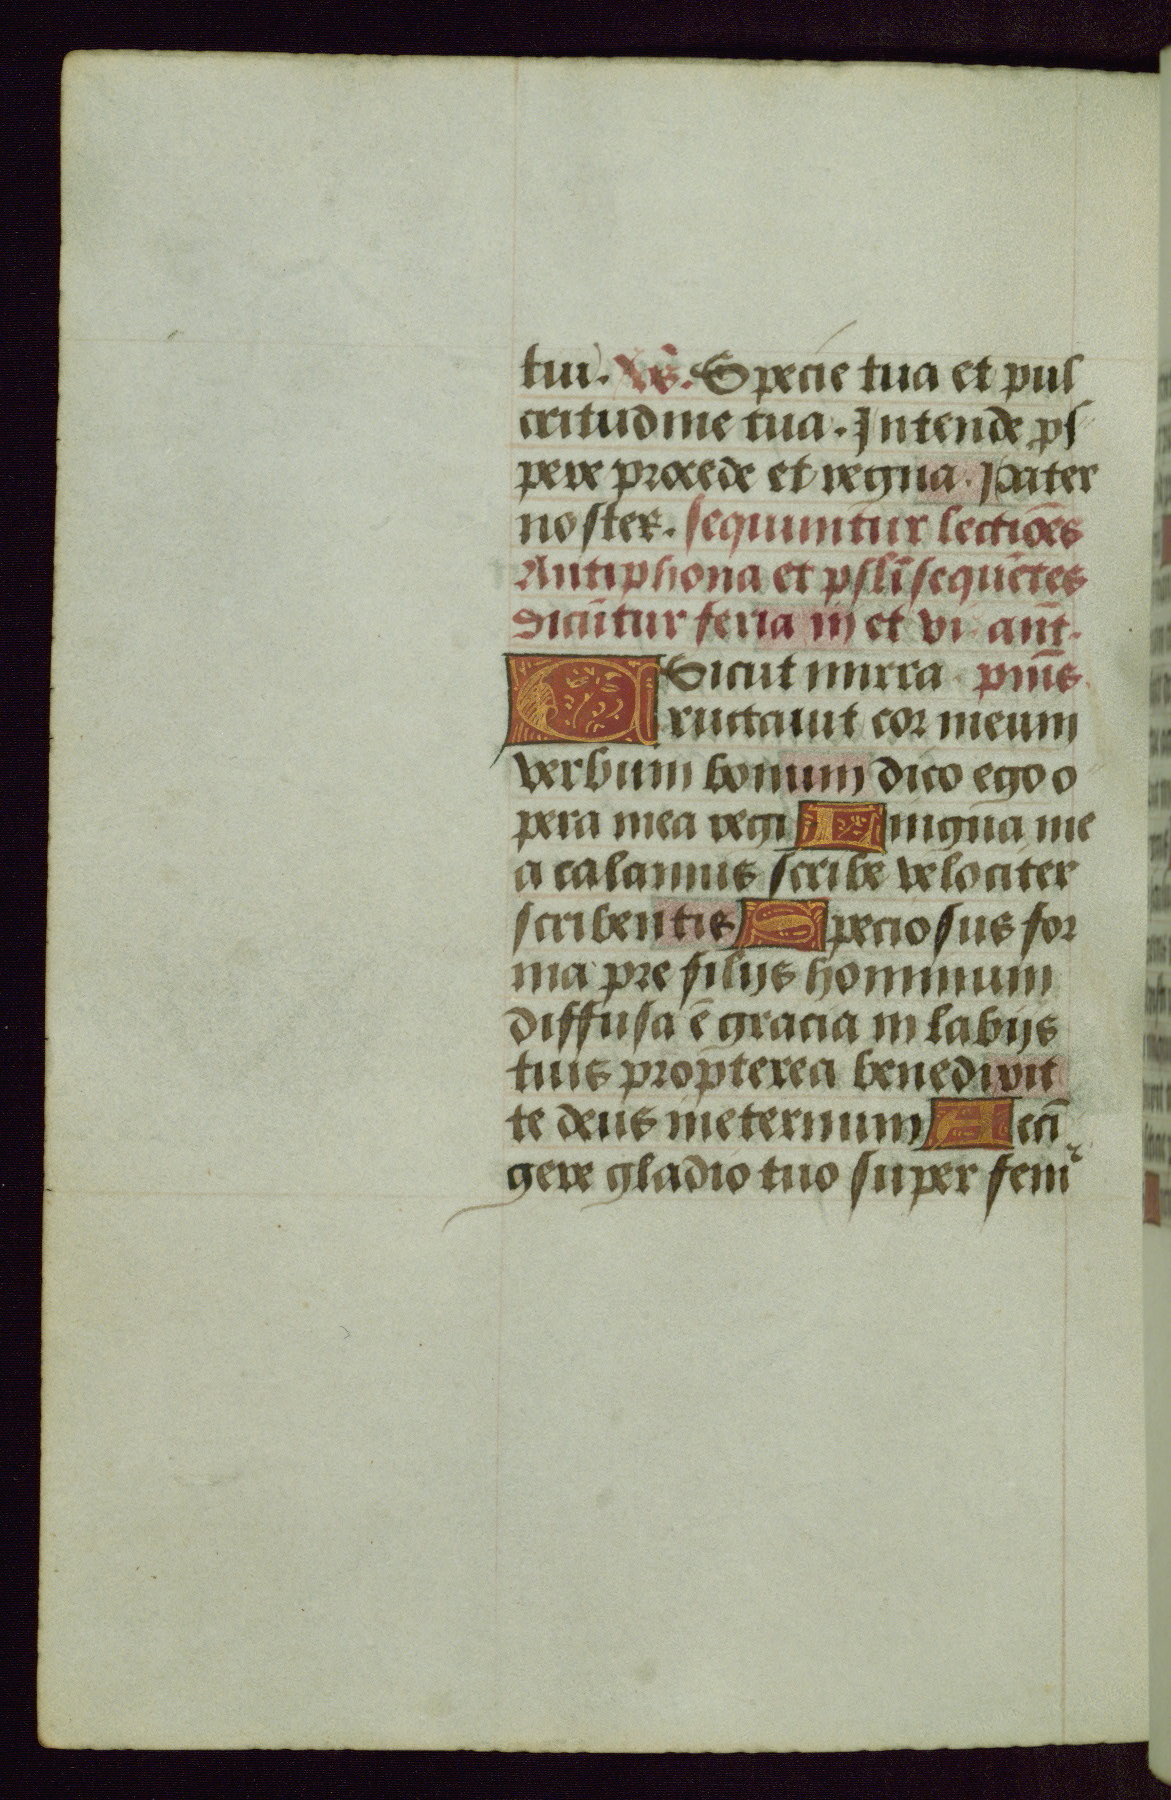 tui. Vs̄. Specie tua et pul
critudine tua. Intende ꝓs
pere procede et regna. Pater
noster. sequuntur lectiōes
Antiphona et psl̄i sequētes
dicūtur feria iij et vi an̄t.
Sicut mirra. psm̄s.
Eructauit cor meum
verbum bonum dico ego o
pera mea regi Lingua me
a calamus scribe velociter
scribentis Speciosus for
ma pre filijs hominum
diffusa ē gracia in labijs
tuis propterea benedixit
te deus in eternum Accī
gere gladio tuo super femꝰ